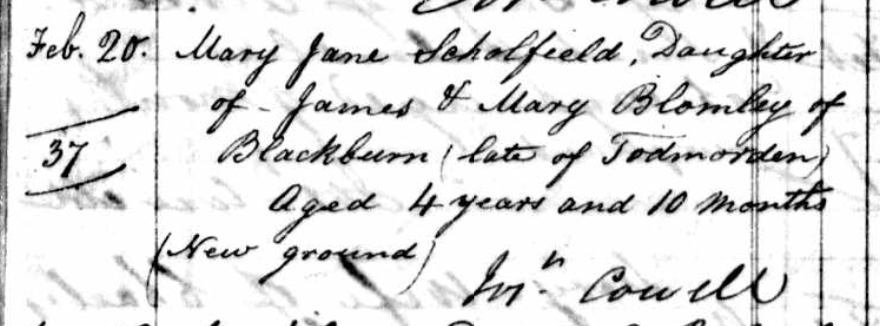 Feb. 20. Mary Jane Scholfield, Daughter
of - James & Mary Blomley of
37 Blackburn (late of Todmorden)
Aged 4 years and 10 months
(New ground)
Jnº. Cowell